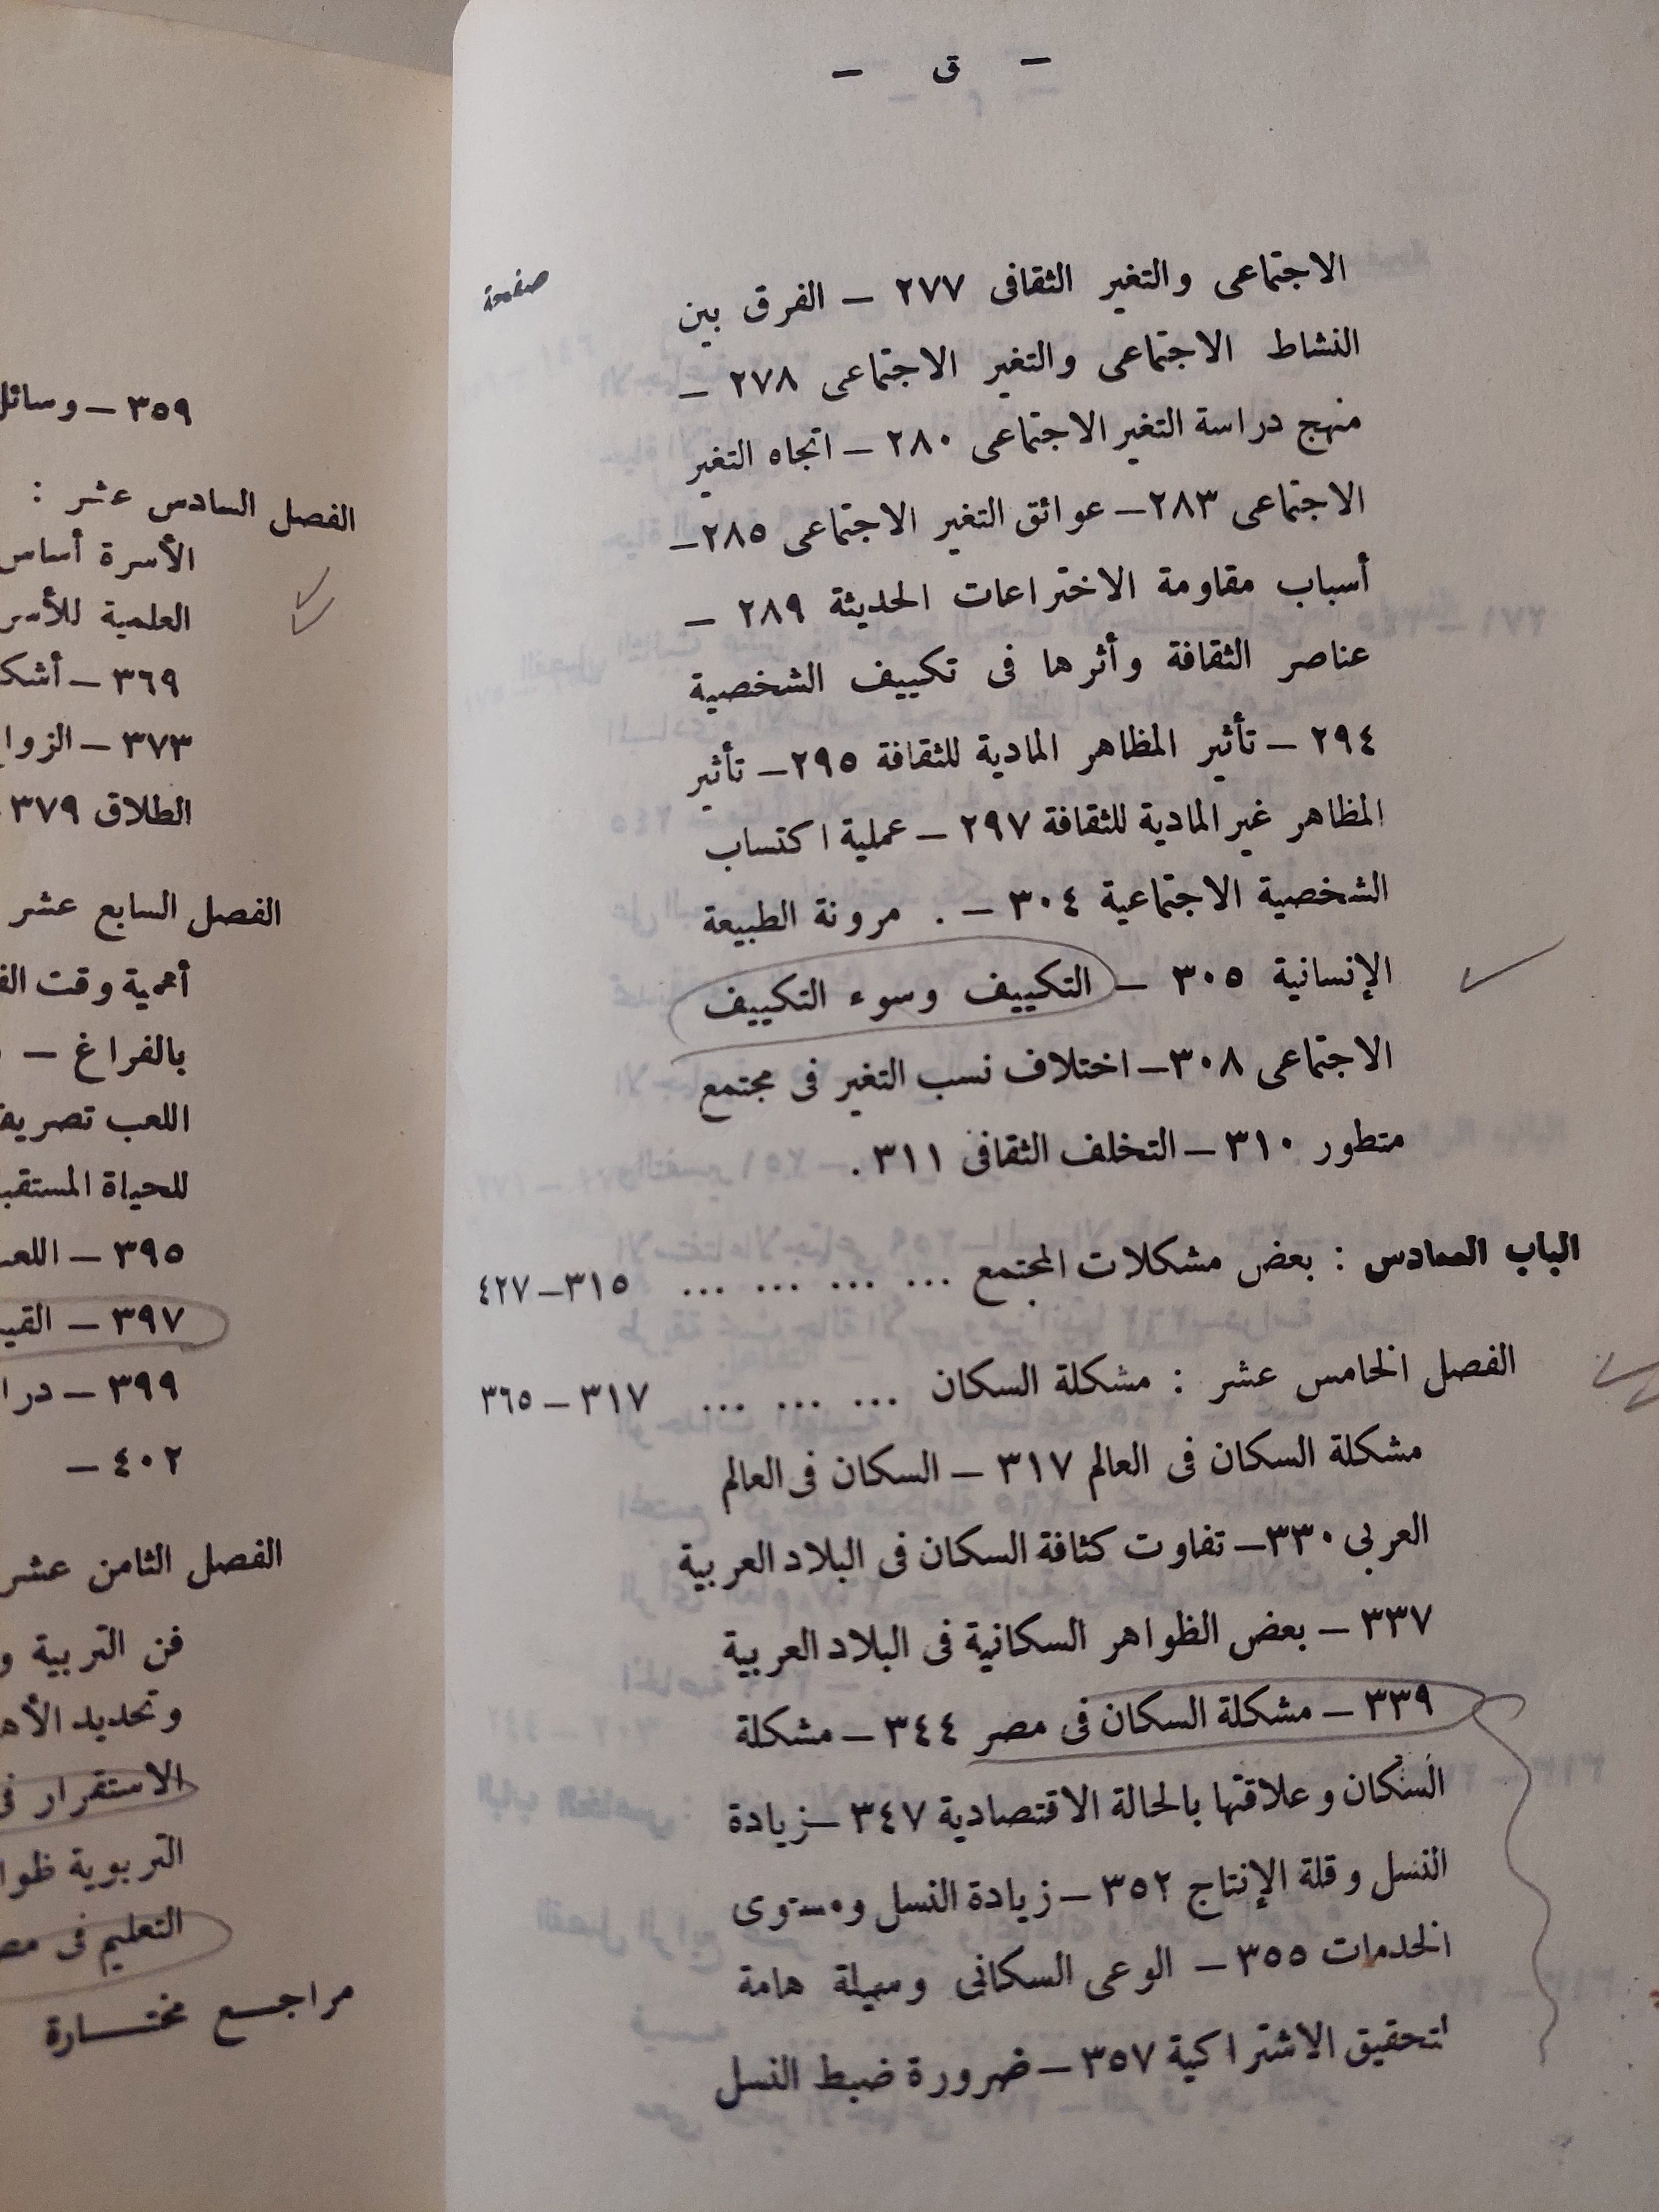 — ق —
صفحة
الاجتماعى والتغير الثقافى ٢٧٧ — الفرق بين
النشاط الاجتماعى والتغير الاجتماعى ٢٧٨ —
منهج دراسة التغير الاجتماعى ٢٨٠ — اتجاه التغير
الاجتماعى ٢٨٣ — عوائق التغير الاجتماعى ٢٨٥ —
أسباب مقاومة الاختراعات الحديثة ٢٨٩ —
عناصر الثقافة وأثرها فى تكييف الشخصية
٢٩٤ — تأثير المظاهر المادية للثقافة ٢٩٥ — تأثير
المظاهر غير المادية للثقافة ٢٩٧ — عملية اكتساب
الشخصية الاجتماعية ٣٠٤ — . مرونة الطبيعة
الإنسانية ٣٠٥ — التكييف وسوء التكييف
الاجتماعى ٣٠٨ — اختلاف نسب التغير فى مجتمع
متطور ٣١٠ — التخلف الثقافى ٣١١ .
الباب السادس : بعض مشكلات المجتمع ... ... ... ... ٣١٥ — ٤٢٧
الفصل الخامس عشر : مشكلة السكان ... ... ... ٣١٧ — ٣٦٥
مشكلة السكان فى العالم ٣١٧ — السكان فى العالم
العربى ٣٣٠ — تفاوت كثافة السكان فى البلاد العربية
٣٣٧ — بعض الظواهر السكانية فى البلاد العربية
٣٣٩ — مشكلة السكان فى مصر ٣٤٤ — مشكلة
السكان وعلاقتها بالحالة الاقتصادية ٣٤٧ — زيادة
النسل وقلة الإنتاج ٣٥٢ — زيادة النسل ومستوى
الخدمات ٣٥٥ — الوعى السكانى وسيلة هامة
لتحقيق الاشتراكية ٣٥٧ — ضرورة ضبط النسل
٣٥٩ — وسائل
الفصل السادس عشر :
الأسرة أساس
العلمية للأسر
٣٦٩ — أشك
٣٧٣ — الزوا
الطلاق ٣٧٩
الفصل السابع عشر
أهمية وقت الف
بالفراغ —
اللعب تصريف
للحياة المستقب
٣٩٥ — اللع
٣٩٧ — القي
٣٩٩ — درا
٤٠٢ —
الفصل الثامن عشر
فن التربية و
وتحديد الأه
الاستقرار ف
التربوية ظوا
التعليم فى مص
مراجع مختارة